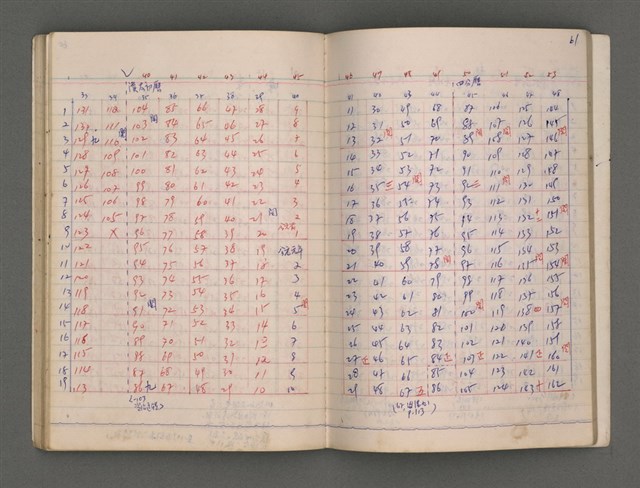 61
40 41 42 43 44 45
漢太初曆
35 36 37 38 39 40
1 131 112 104 85 66 47 28 9
2 130 111 103 閏 84 65 46 27 8
3 129 110 102 83 64 45 26 7
4 128 109 101 82 63 44 25 6
5 127 108 100 81 62 43 24 5
6 126 107 99 80 61 42 23 4
7 125 106 98 79 60 41 22 3
8 124 105 97 78 59 40 21 閏 2
9 123 x 96 77 58 39 20 1
10 122 95 76 57 38 19 公元元年
11 121 94 75 56 37 18 2
12 120 93 74 55 36 17 3
13 119 92 73 54 35 16 4
14 118 91 閏 72 53 34 15 5 閏
15 117 90 71 52 33 14 6
16 116 89 70 51 32 13 7
17 115 88 69 50 31 12 8
18 114 87 68 49 30 11 9
19 113 86 九 67 48 29 10 10
46 47 48 49 50 51 52 53
四分曆
41 42 43 44 45 46 47 48
11 30 49 68 87 106 125 144
12 31 50 69 88 107 126 145
13 32 閏 51 70 89 閏 108 127 146
14 33 52 71 90 109 128 147
15 34 53 72 91 110 129 148
16 35 三 54 閏 73 92 三 111 閏 130 149
17 36 55 74 93 112 131 150
18 37 56 75 94 113 132 151 閏
19 38 57 76 95 114 133 152
20 39 58 77 96 115 134 153
21 40 59 78 閏 97 116 135 154
22 41 60 79 98 117 136 155
23 42 61 80 99 118 137 156
24 43 62 81 100 閏 119 138 157
25 44 63 82 101 120 139 158
26 45 64 83 102 121 140 159
27 46 65 84 103 122 141 160
28 47 66 85 104 123 142 161
29 48 67 五 86 105 124 143 162
P.113